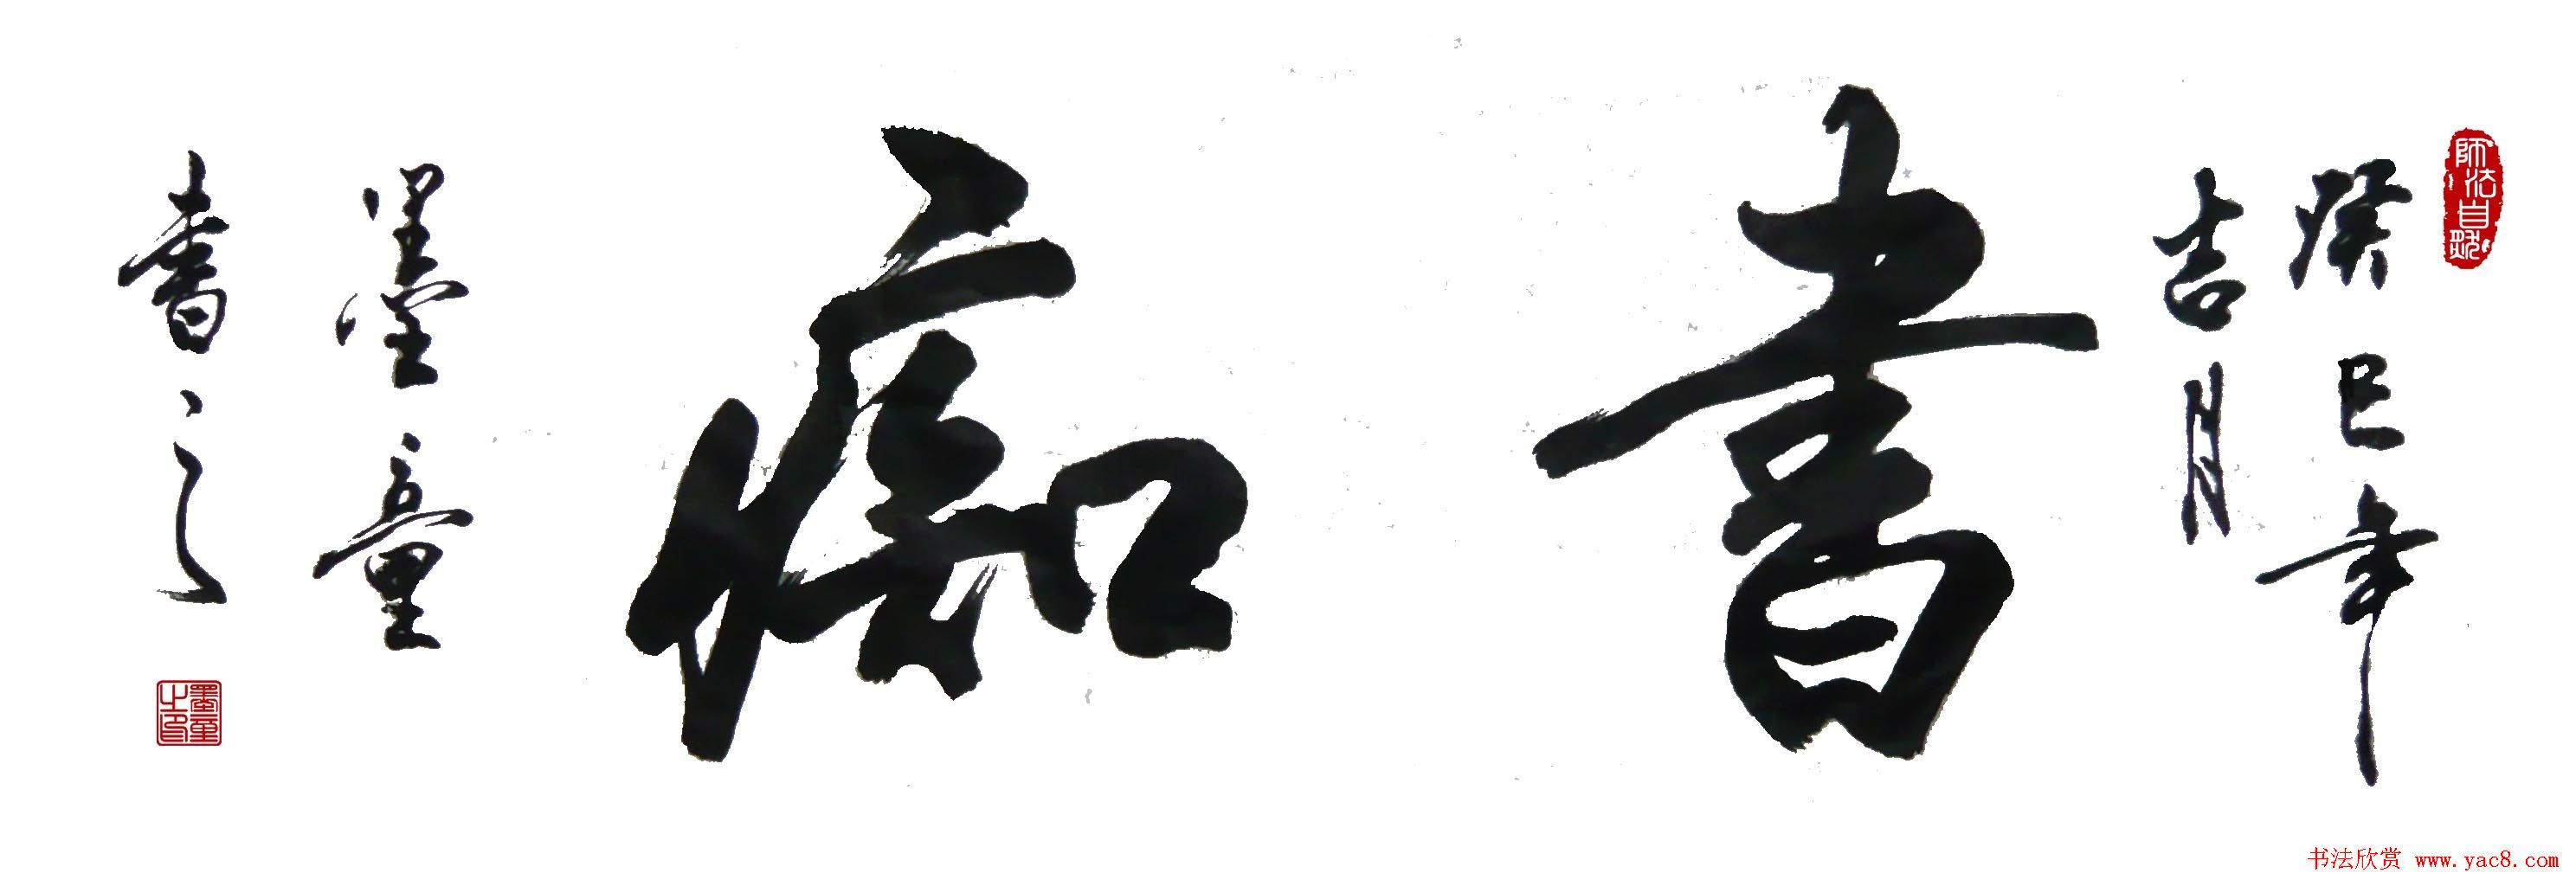 师法自然
癸巳年
吉月
書痴
墨童
書之
墨童之印
书法欣赏 www.yac8.com